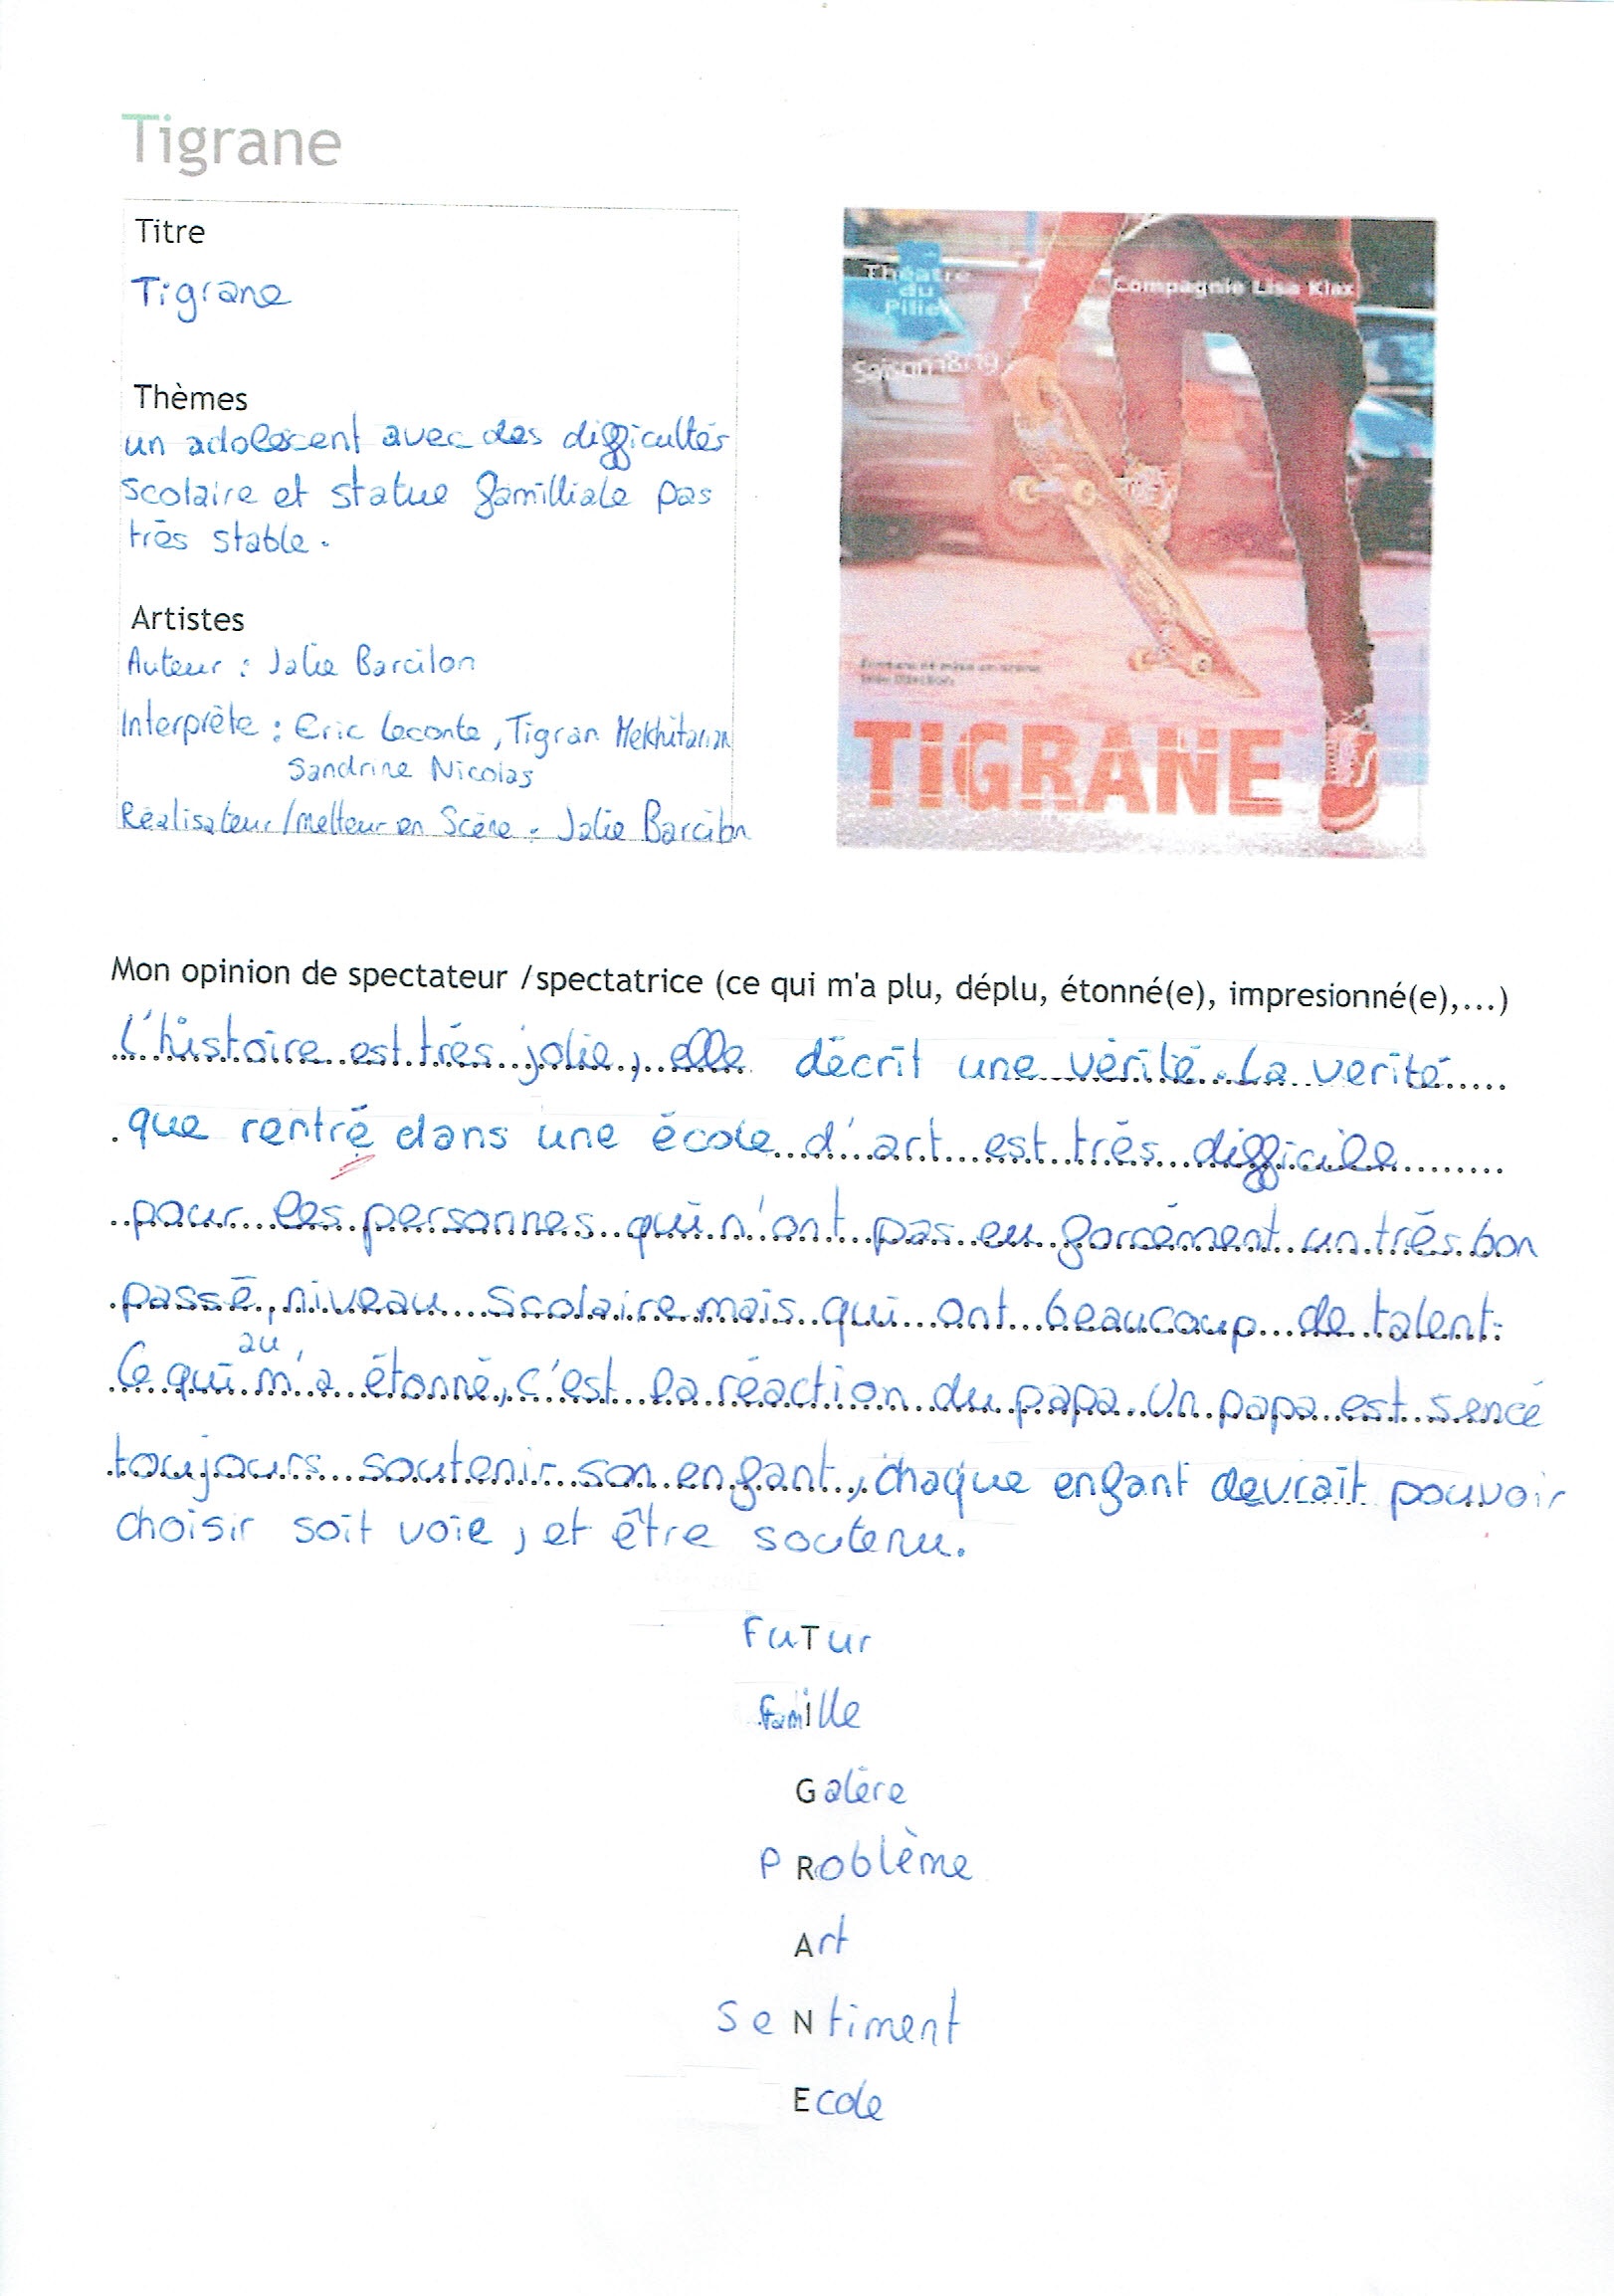 Tigrane
Titre
Tigrane
Thèmes
un adolescent avec des difficultés
scolaire et statue familliale pas
très stable.
Artistes
Auteur : Jalie Barcilon
Interprète : Eric Leconte, Tigran Mekhitarian
Sandrine Nicolas
Réalisateur/metteur en Scène : Jalie Barcilon
Théâtre
du
Pilier
Compagnie Lisa Klax
Saison 18/19
Ecriture et mise en scène
Jalie Barcilon
TiGRANE
Mon opinion de spectateur /spectatrice (ce qui m'a plu, déplu, étonné(e), impresionné(e),...)
L'histoire est très jolie, elle décrit une vérité. La verité
que rentré dans une école d'art est très difficile
pour les personnes qui n'ont pas eu forcément un très bon
passé, niveau scolaire mais qui ont beaucoup de talent.
au
Ce qui m'a étonné, c'est la réaction du papa. Un papa est sencé
toujours soutenir son enfant, chaque enfant devrait pouvoir
choisir soit voie, et être soutenu.
FuTur
famille
Galère
PRoblème
Art
SeNtiment
Ecole